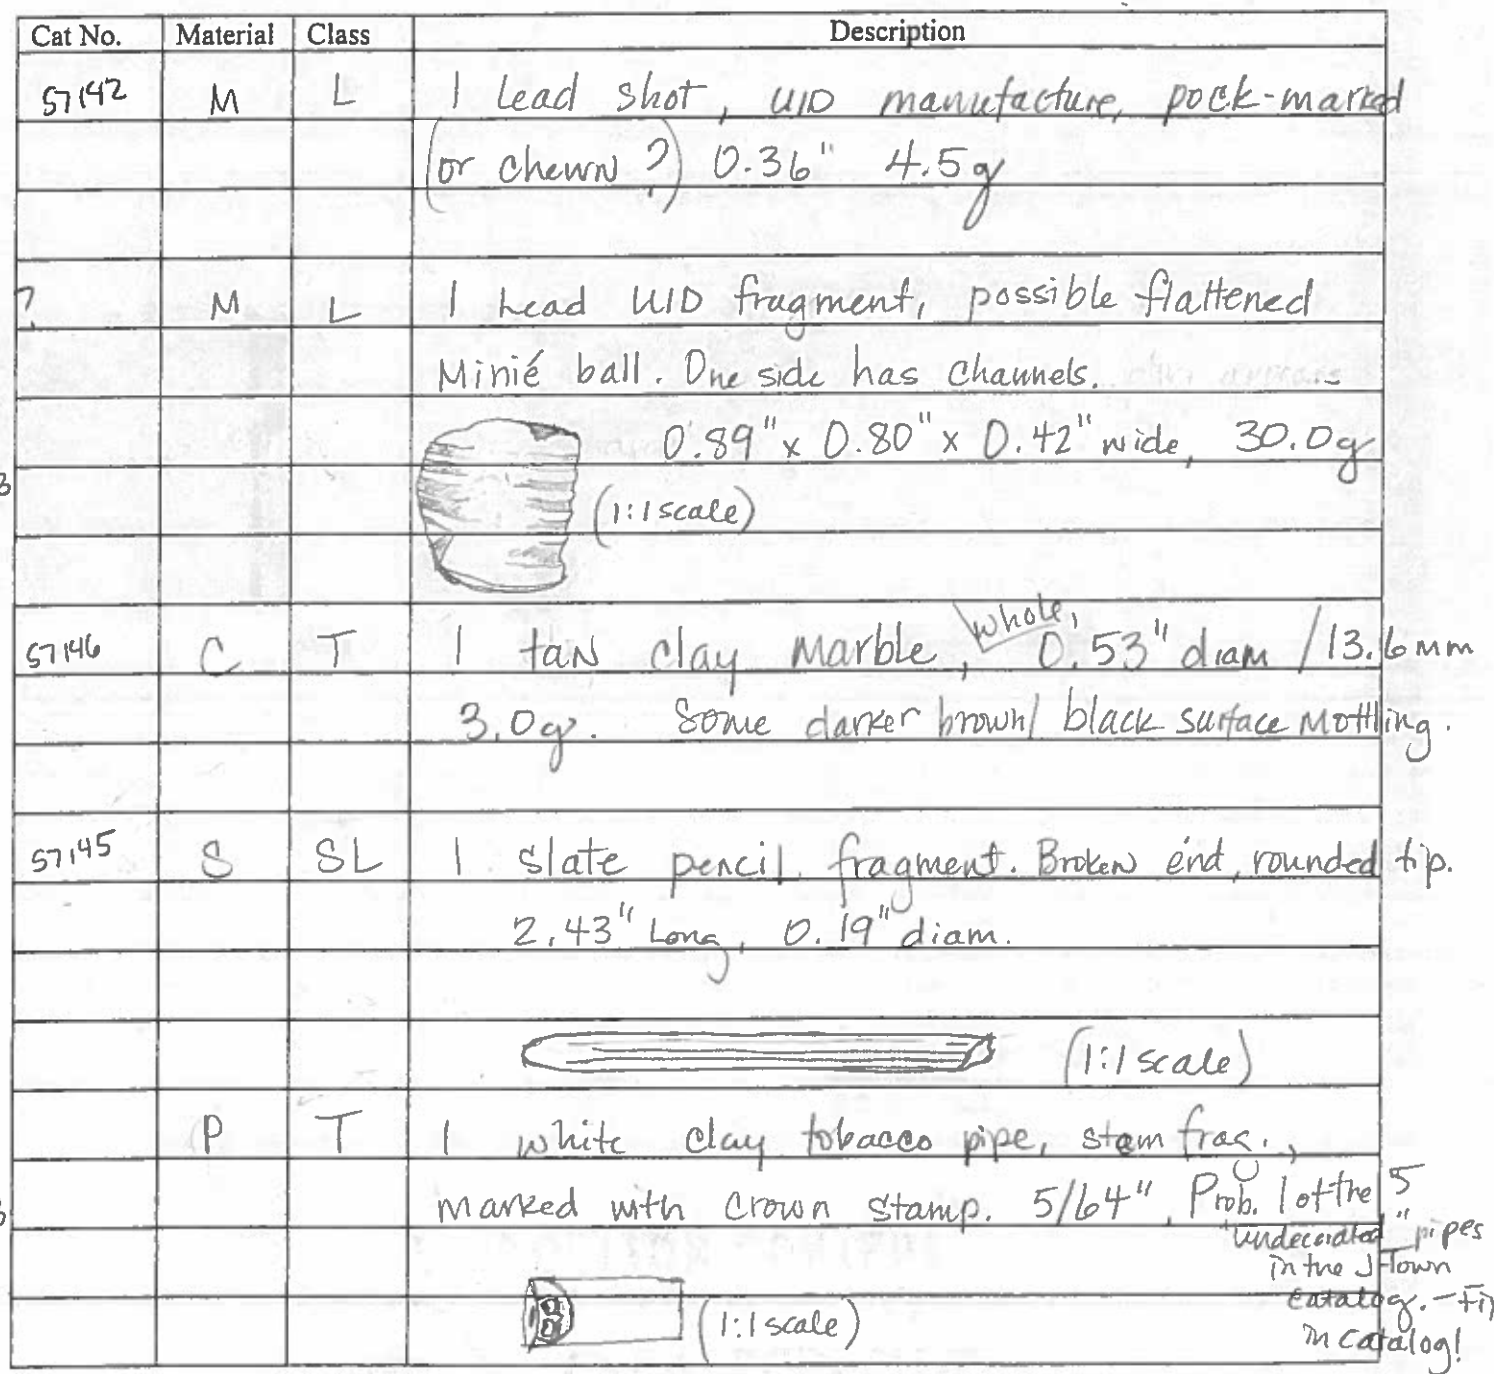 Cat No. Material Class Description
57142 M L 1 Lead shot, UID manufacture, pock-marked
(or chewn?) 0.36" 4.5g
? M L 1 Lead UID fragment, possible flattened
Minié ball. One side has channels.
0.89" x 0.80" x 0.42" wide, 30.0g
(1:1 scale)
57146 C T 1 tan clay marble, whole, 0.53" diam / 13.6mm
3.0g. Some darker brown/black surface mottling.
57145 S SL 1 slate pencil fragment. Broken end, rounded tip.
2.43" Long, 0.19" diam.
(1:1 scale)
P T 1 white clay tobacco pipe, stem frag.,
marked with crown stamp. 5/64", Prob. 1 of the 5
"undecorated" pipes
in the J-Town
catalog. -
in catalog!
(1:1 scale)